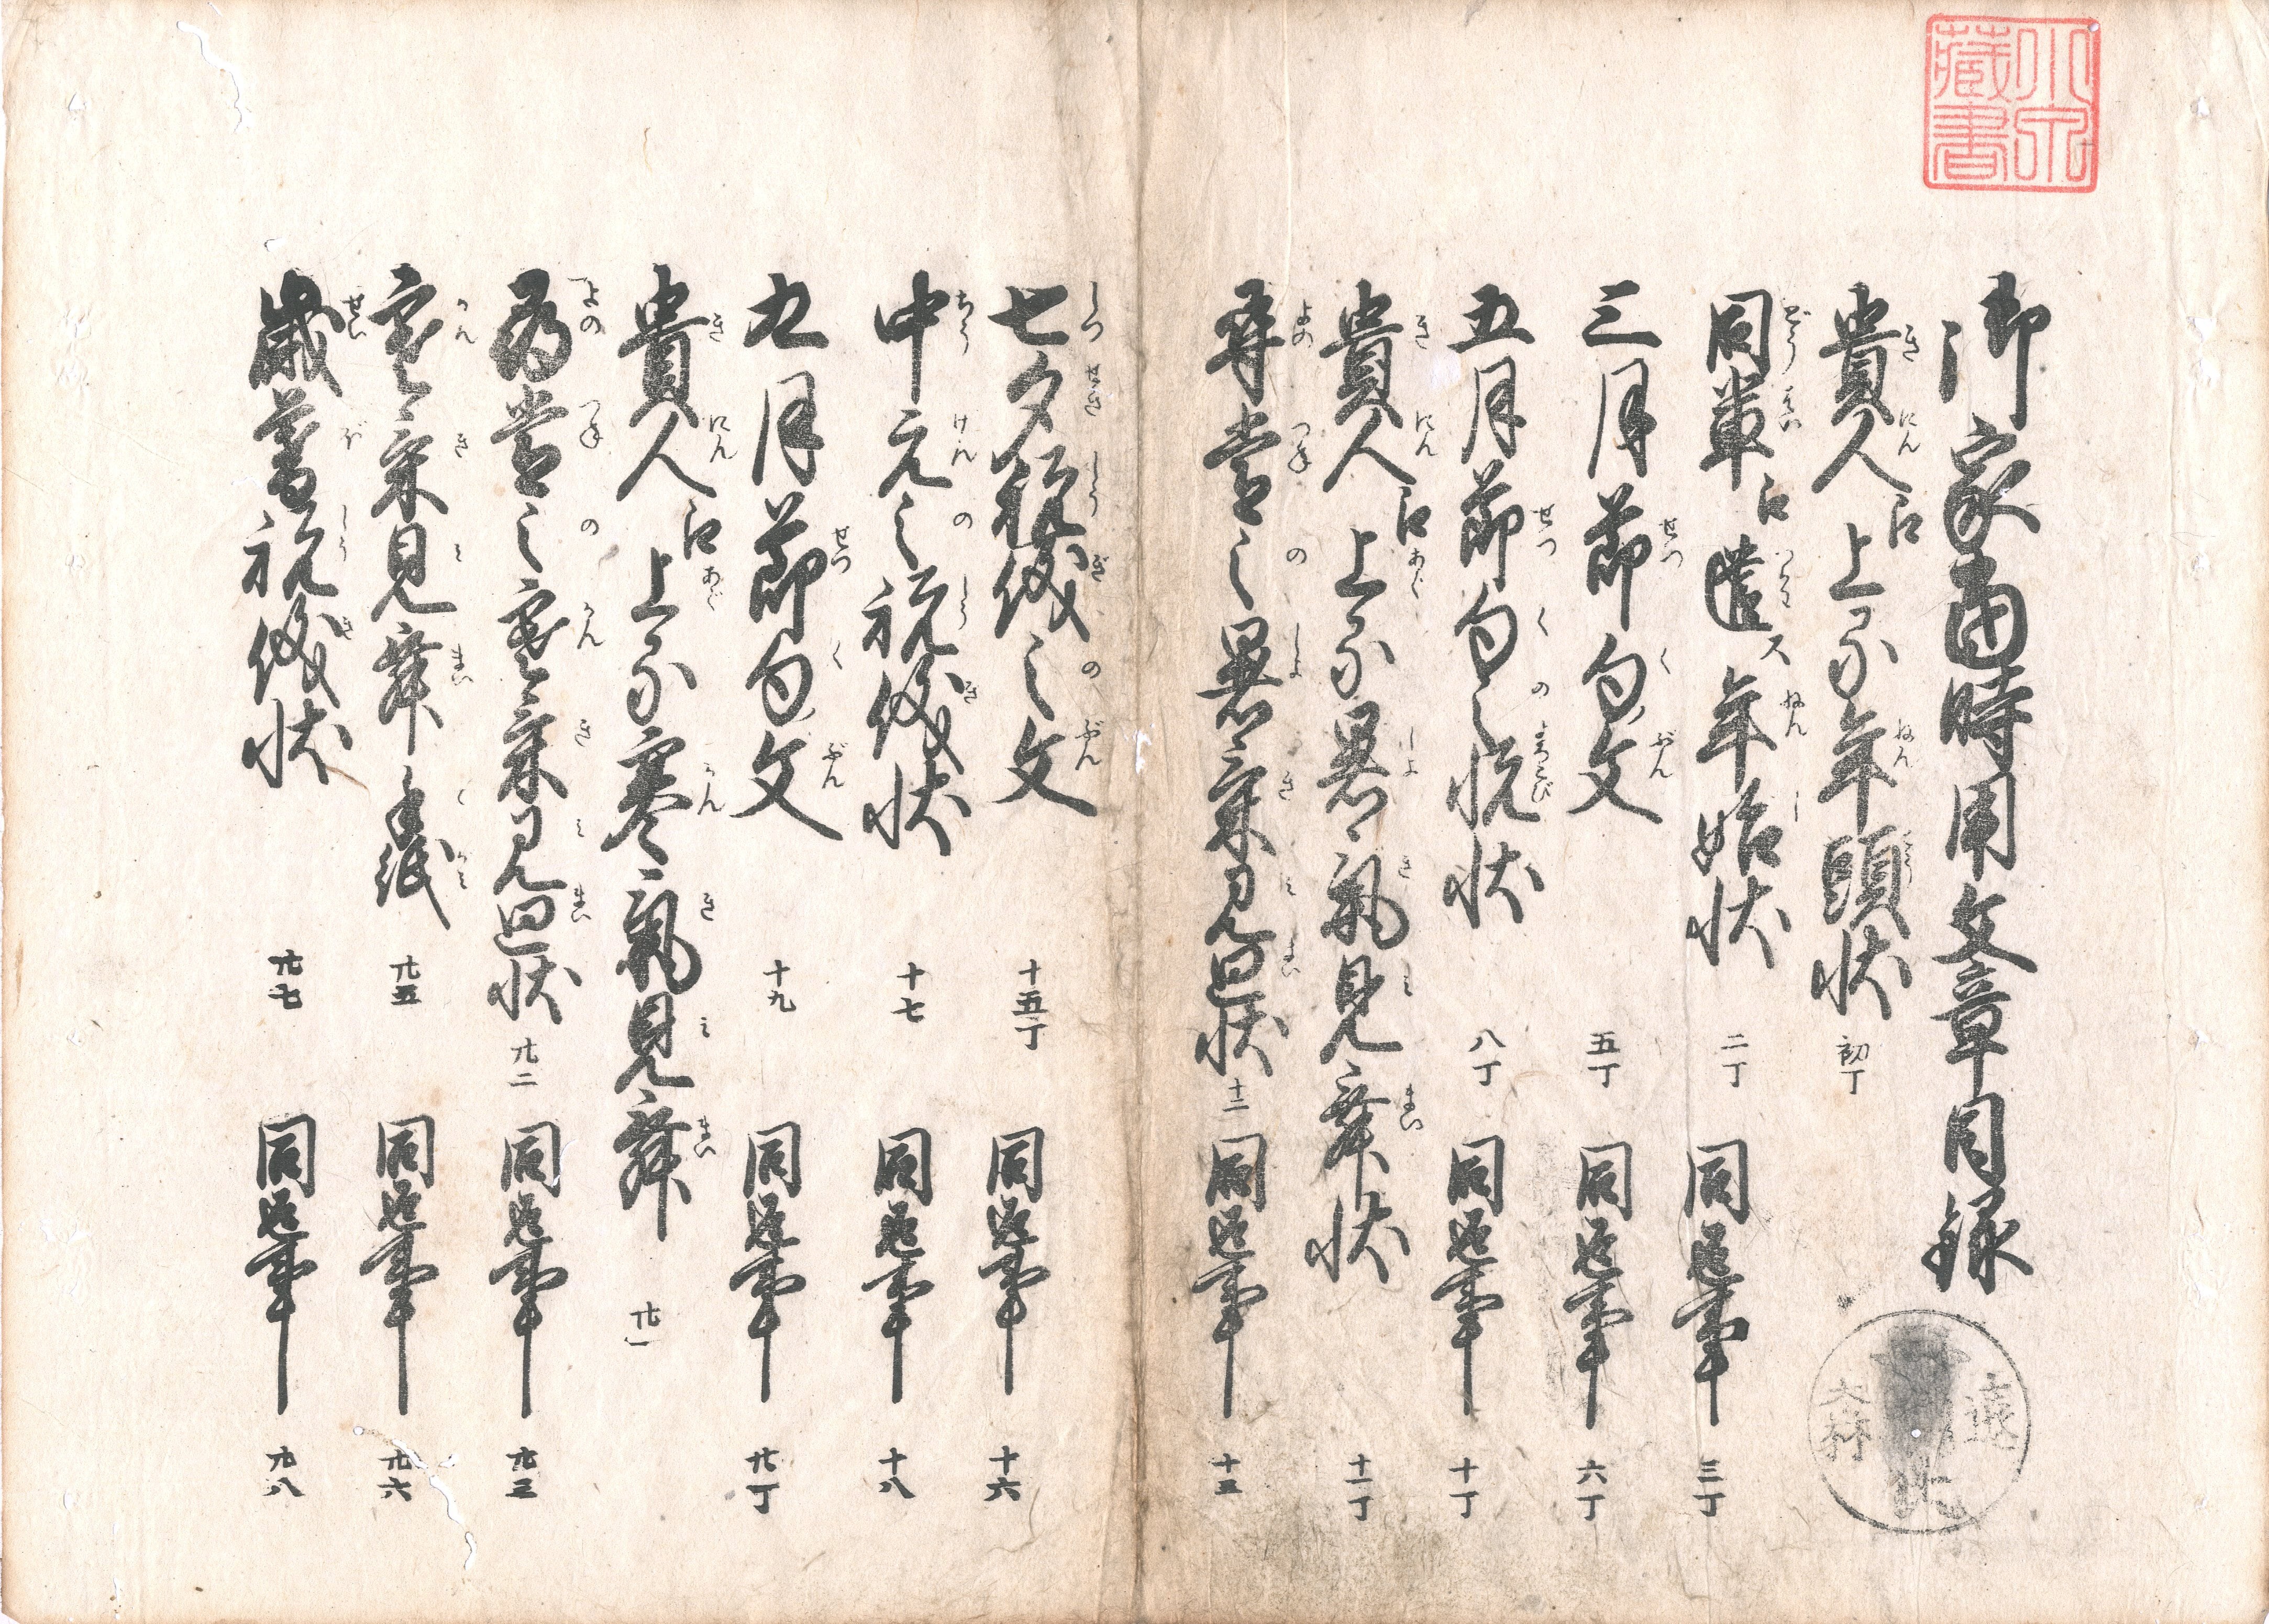 藏書
御家當時用文章目録
貴人江上る年頭状 初丁
同輩江遣ス年始状 二丁 同返事 三丁
三月節句文 五丁 同返事 六丁
五月節句之悦状 八丁 同返事 十丁
貴人江上る暑氣見舞状 十一丁
尋常之暑氣見廻状 十二 同返事 十三
七夕祝儀之文 十五丁 同返事 十六
中元之祝儀状 十七 同返事 十八
九月節句文 十九 同返事 廿丁
貴人江上る寒氣見舞 廿一
尋常之寒氣見廻状 廿二 同返事 廿三
寒氣見舞手紙 廿五 同返事 廿六
歳暮祝儀状 廿七 同返事 廿八